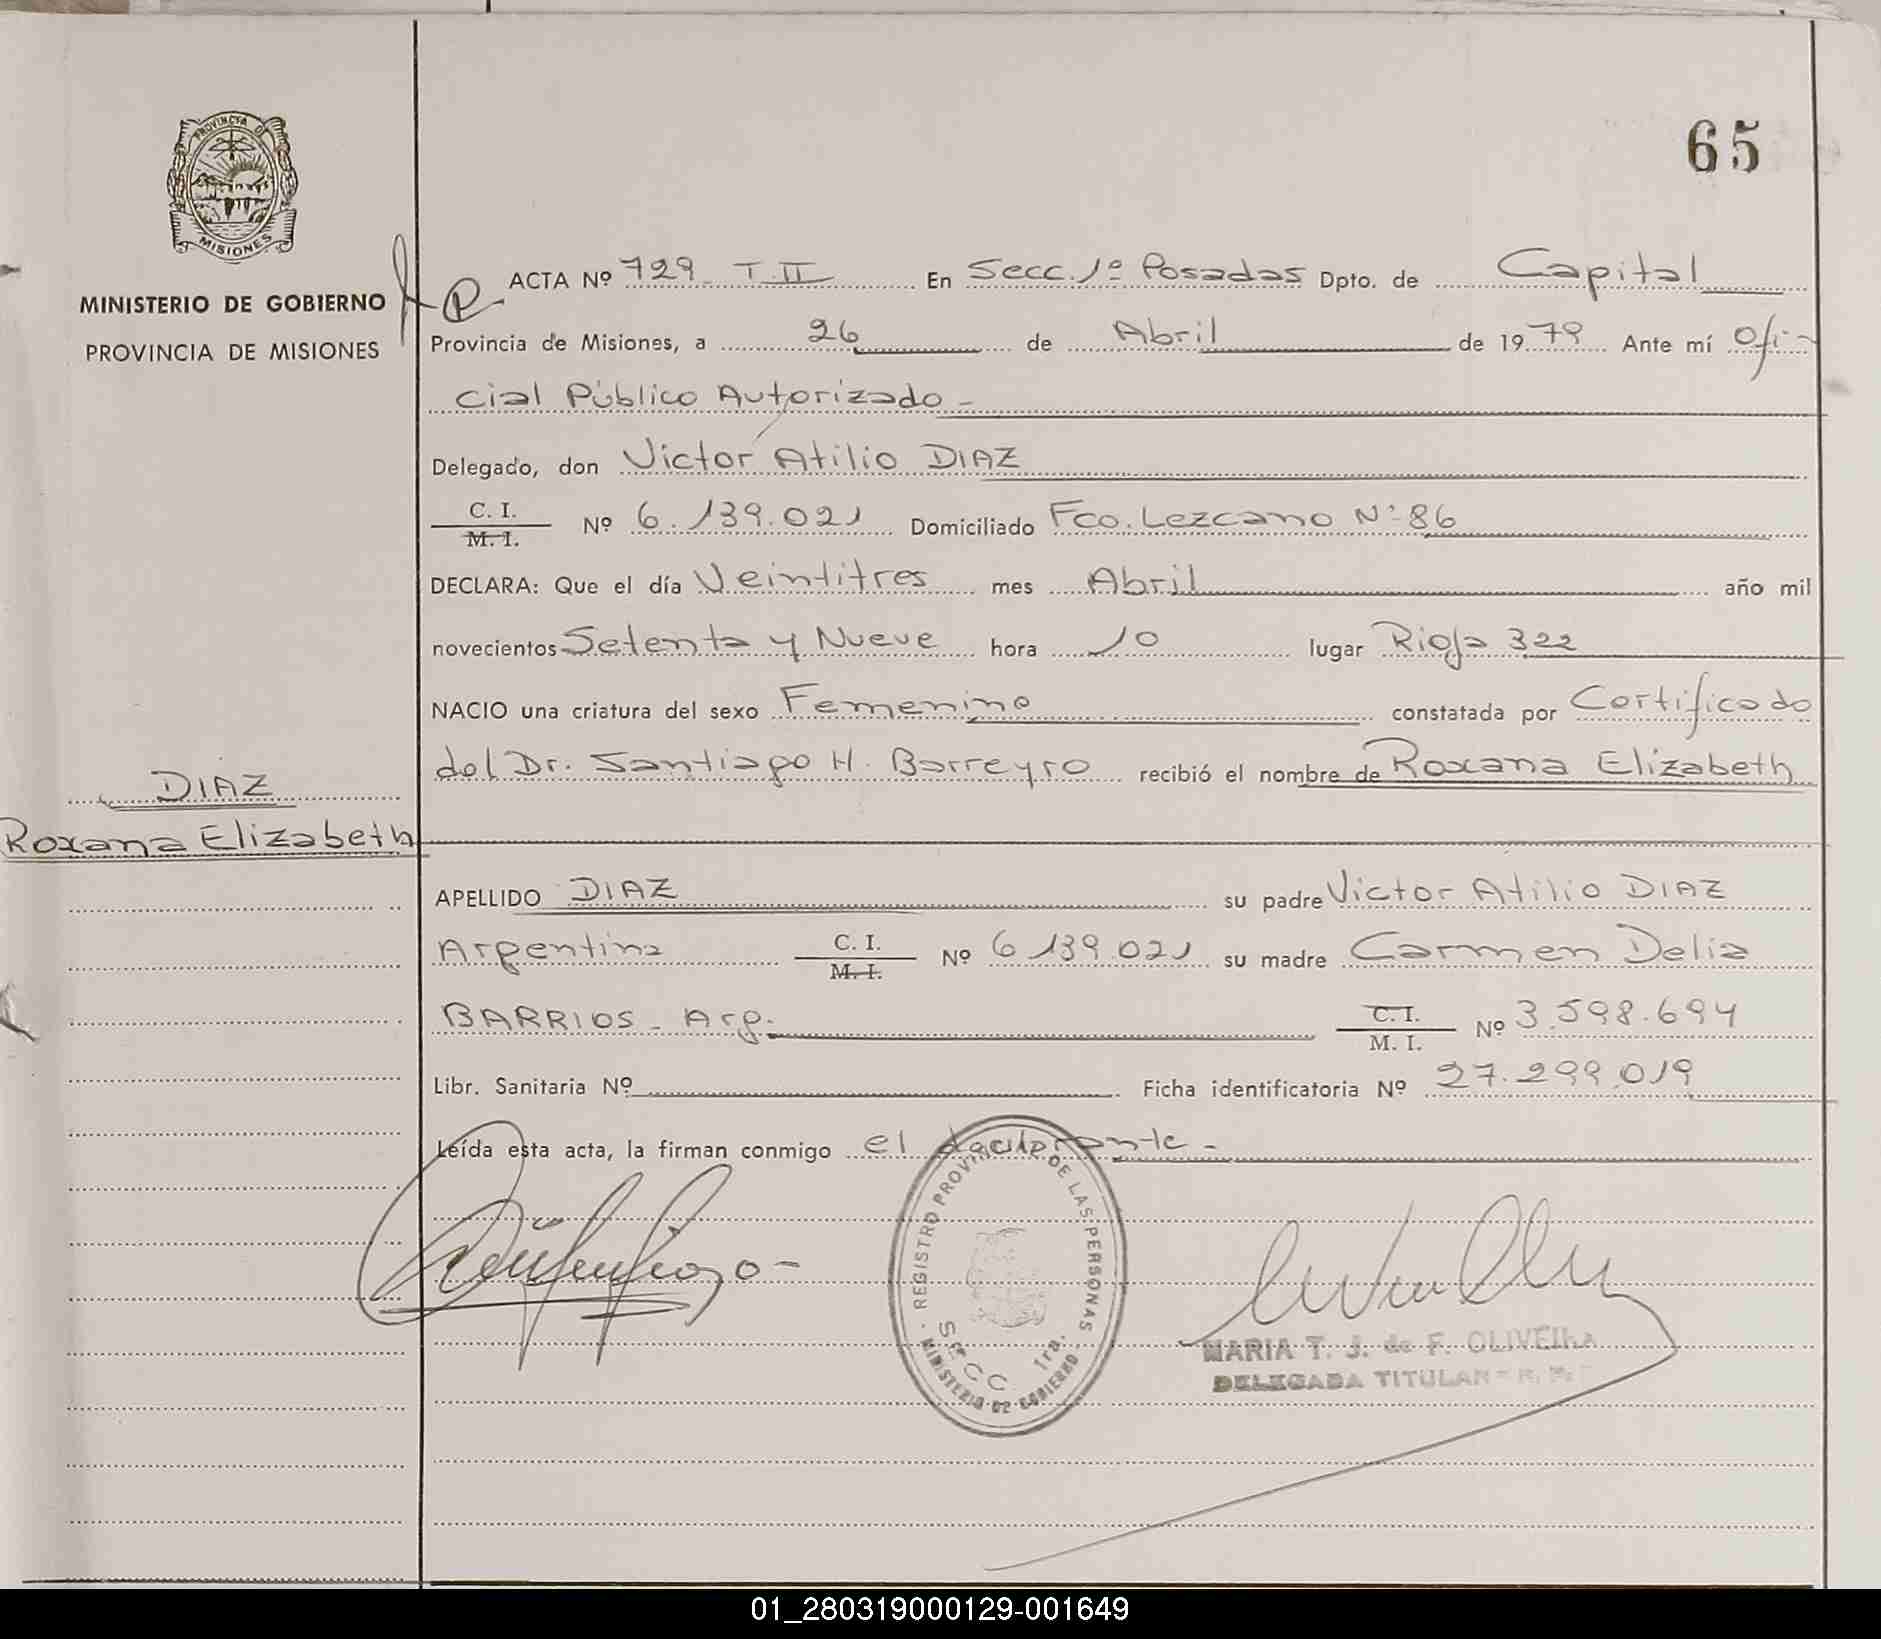 65
PROVINCIA DE
MISIONES
MINISTERIO DE GOBIERNO
PROVINCIA DE MISIONES
ACTA Nº 729 T.II En Secc. 1º Posadas Dpto. de Capital
Provincia de Misiones, a 26 de Abril de 1979 Ante mí Ofi-
cial Público Autorizado -
Delegado, don Victor Atilio DIAZ
C. I.
M. I.
Nº 6.139.021 Domiciliado Fco. Lezcano Nº 86
DECLARA: Que el día Veintitres mes Abril año mil
novecientos Setenta y Nueve hora 10 lugar Rioja 322
NACIO una criatura del sexo Femenino constatada por Certificado
del Dr. Santiago H. Barreyro recibió el nombre de Roxana Elizabeth
DIAZ
Roxana Elizabeth
APELLIDO DIAZ su padre Victor Atilio DIAZ
Argentina C. I. M. I. Nº 6 139.021 su madre Carmen Delia
BARRIOS - Arg. C. I. M. I. Nº 3.598.694
Libr. Sanitaria Nº Ficha identificatoria Nº 27.299.019
Leída esta acta, la firman conmigo el declarante -
REGISTRO PROVINCIAL DE LAS PERSONAS
SECC 1ra.
MINISTERIO DE GOBIERNO
MARIA T. J. de F. OLIVEIRA
DELEGADA TITULAR
01_280319000129-001649